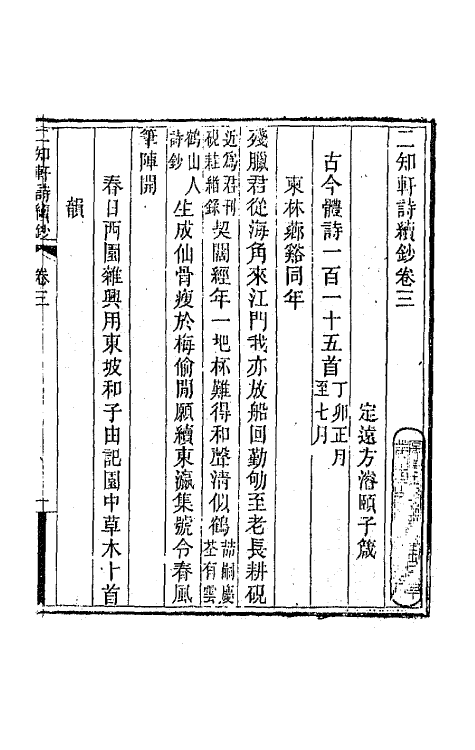 二知軒詩續鈔卷三
定遠方濬頤子箴
古今體詩一百一十五首丁卯正月至七月
柬林薌谿同年
殘臘君從海角來江門我亦放船回勤劬至老長耕硯
近爲君刊硯耕緖錄契闊經年一把杯難得和聲淸似鶴喆嗣慶荃有雲
鶴山人詩鈔生成仙骨瘦於梅偷閒願續東瀛集號令春風
筆陣開
春日西園雜興用東坡和子由記園中草木十首
韻
二知軒詩續鈔 卷三 一